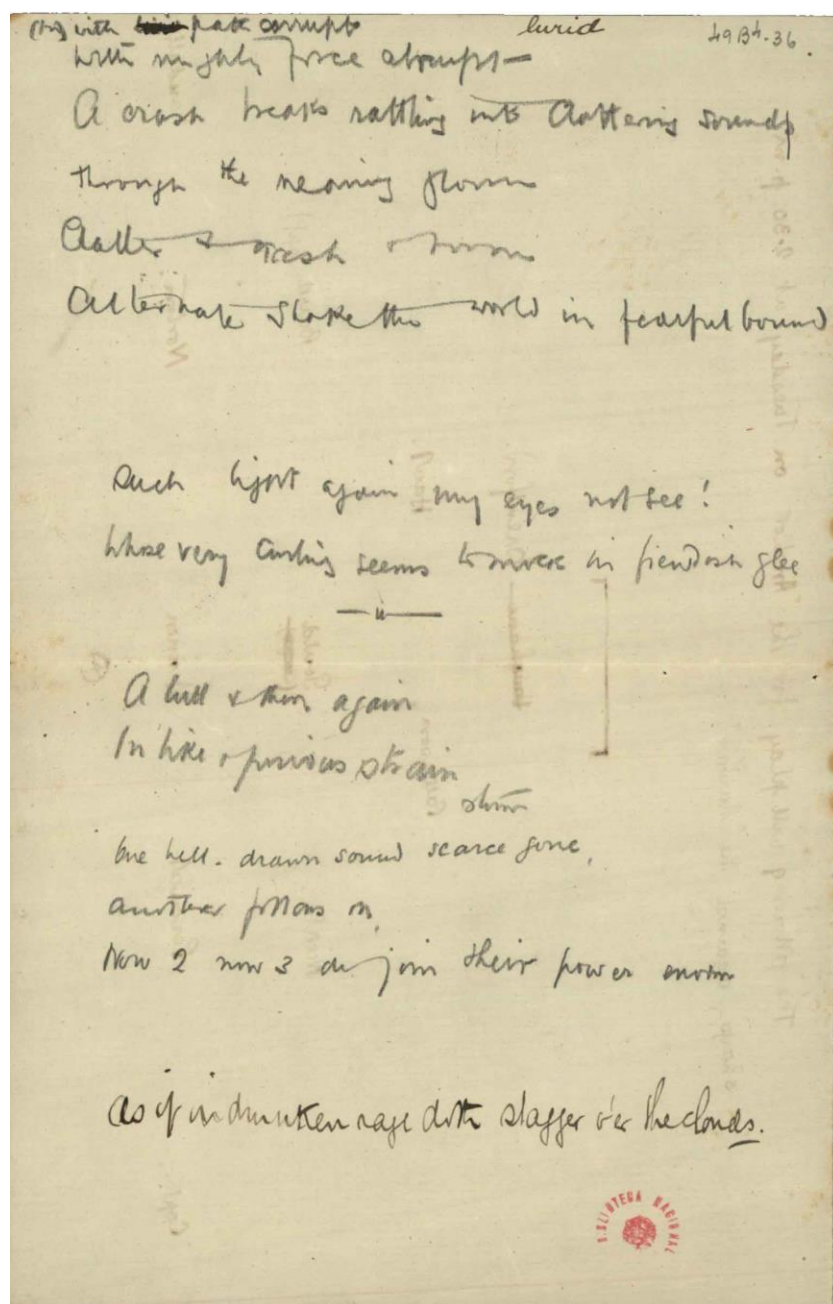 with pale corrupt lurid 49B4-36
With mighty force abrupt—
A crash breaks rattling into clattering sound
Through the nearing
Clatter & crash &
Alternate shake the world in fearful bound
Such light again my eyes not see!
Whose very curling seems to move in fiendish glee
—"—
A lull & then again
In like furious strain
storm
One hell-drawn sound scarce gone,
another follows on,
Now 2 now 3 do join their power enorm
As if in drunken rage doth stagger o'er the clouds.
BIBLIOTECA NACIONAL